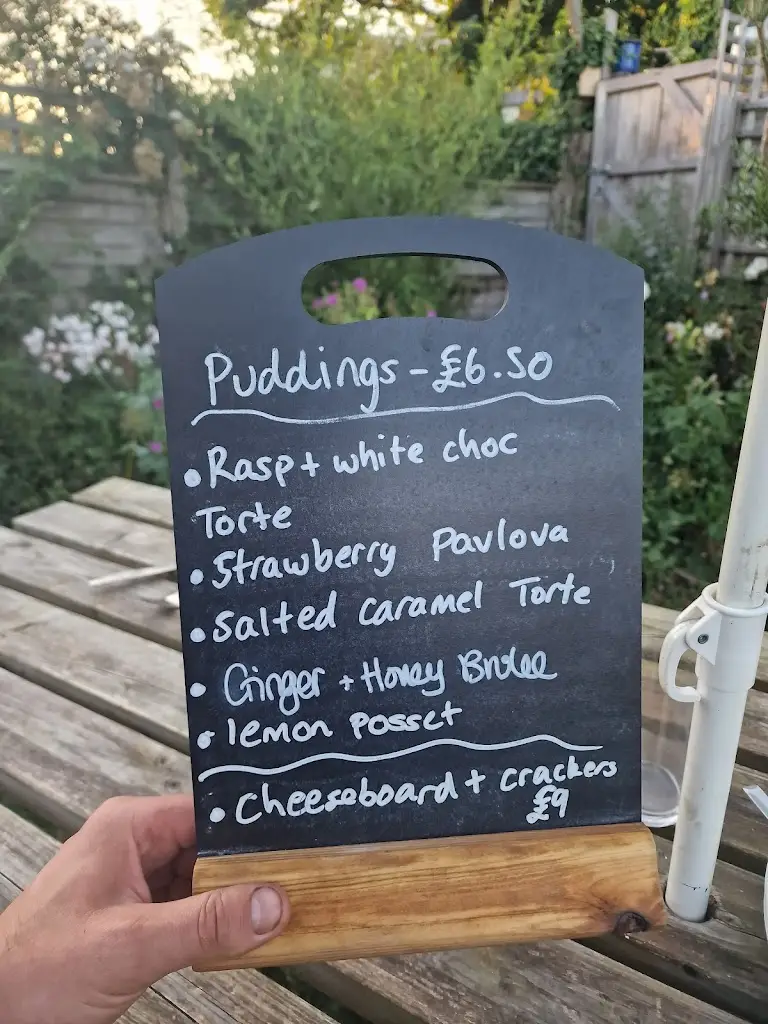 Puddings - £6.50
• Rasp + white choc
Torte
• Strawberry Pavlova
• Salted caramel Torte
• Ginger + Honey Brulee
• lemon posset
• Cheeseboard + crackers
£9